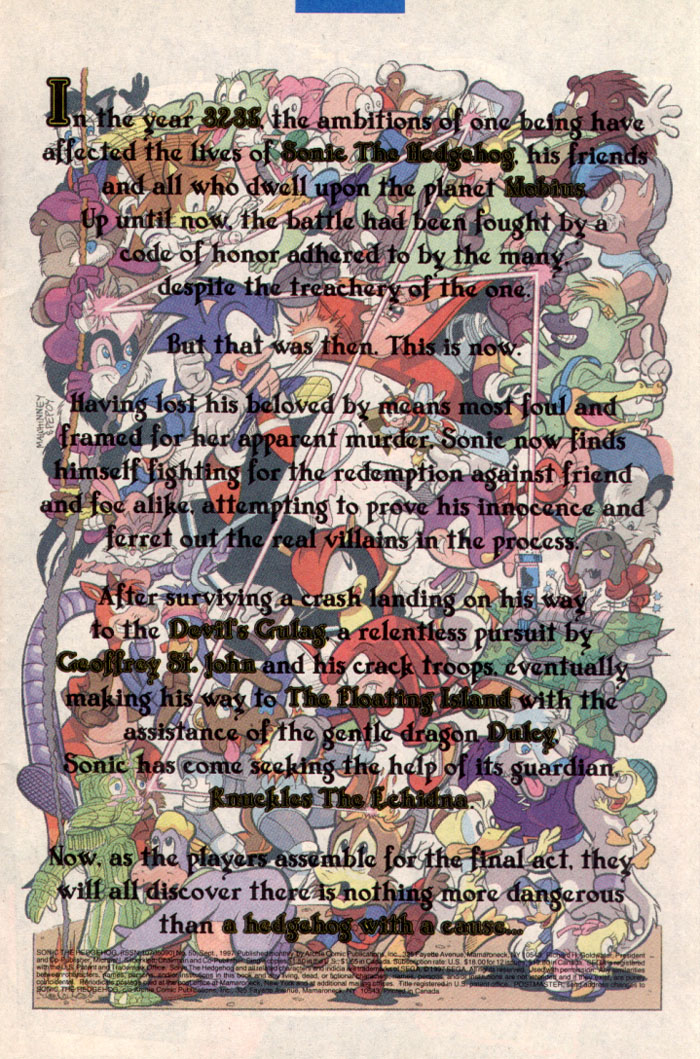 In the year 3235, the ambitions of one being have
affected the lives of Sonic The Hedgehog, his friends
and all who dwell upon the planet Mobius.
Up until now, the battle had been fought by a
code of honor adhered to by the many,
despite the treachery of the one.
But that was then. This is now.
Having lost his beloved by means most foul and
framed for her apparent murder, Sonic now finds
himself fighting for the redemption against friend
and foe alike, attempting to prove his innocence and
ferret out the real villains in the process.
After surviving a crash landing on his way
to the Devil's Gulag, a relentless pursuit by
Geoffrey St. John and his crack troops, eventually
making his way to The Floating Island with the
assistance of the gentle dragon Dulcy,
Sonic has come seeking the help of its guardian,
Knuckles The Echidna.
Now, as the players assemble for the final act, they
will all discover there is nothing more dangerous
than a hedgehog with a cause...
MAWHINNEY
& PEPOY
SONIC THE HEDGEHOG, Sept., 1997. Published monthly by Archie Comic Publications, Inc., 325 Fayette Avenue, Mamaroneck, NY 10543. Richard H. Goldwater, President
and Co-Publisher, Michael I. Silberkleit, Chairman and Co-Publisher. Single copies $1.50 in U.S. Subscription rate: U.S. $18.00 for 12 issues
with the U.S. Patent and Trademark Office. Sonic The Hedgehog and all related characters and indicia are trademarks of SEGA. ©1997 SEGA. All rights reserved. Used with permission. Any similarities
between characters, names, persons, and/or institutions in this book and any living, dead or fictional characters, names, persons, and/or institutions are not intended and if they exist, are purely
coincidental. Periodicals postage paid at the post office at Mamaroneck, New York and at additional mailing offices. Title registered in U.S. patent office. POSTMASTER: send address changes to
SONIC THE HEDGEHOG, c/o Archie Comic Publications, Inc., 325 Fayette Avenue, Mamaroneck, NY 10543. Printed in Canada.